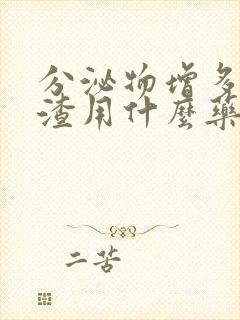 分泌物增多
渣用什麼藥
二苦